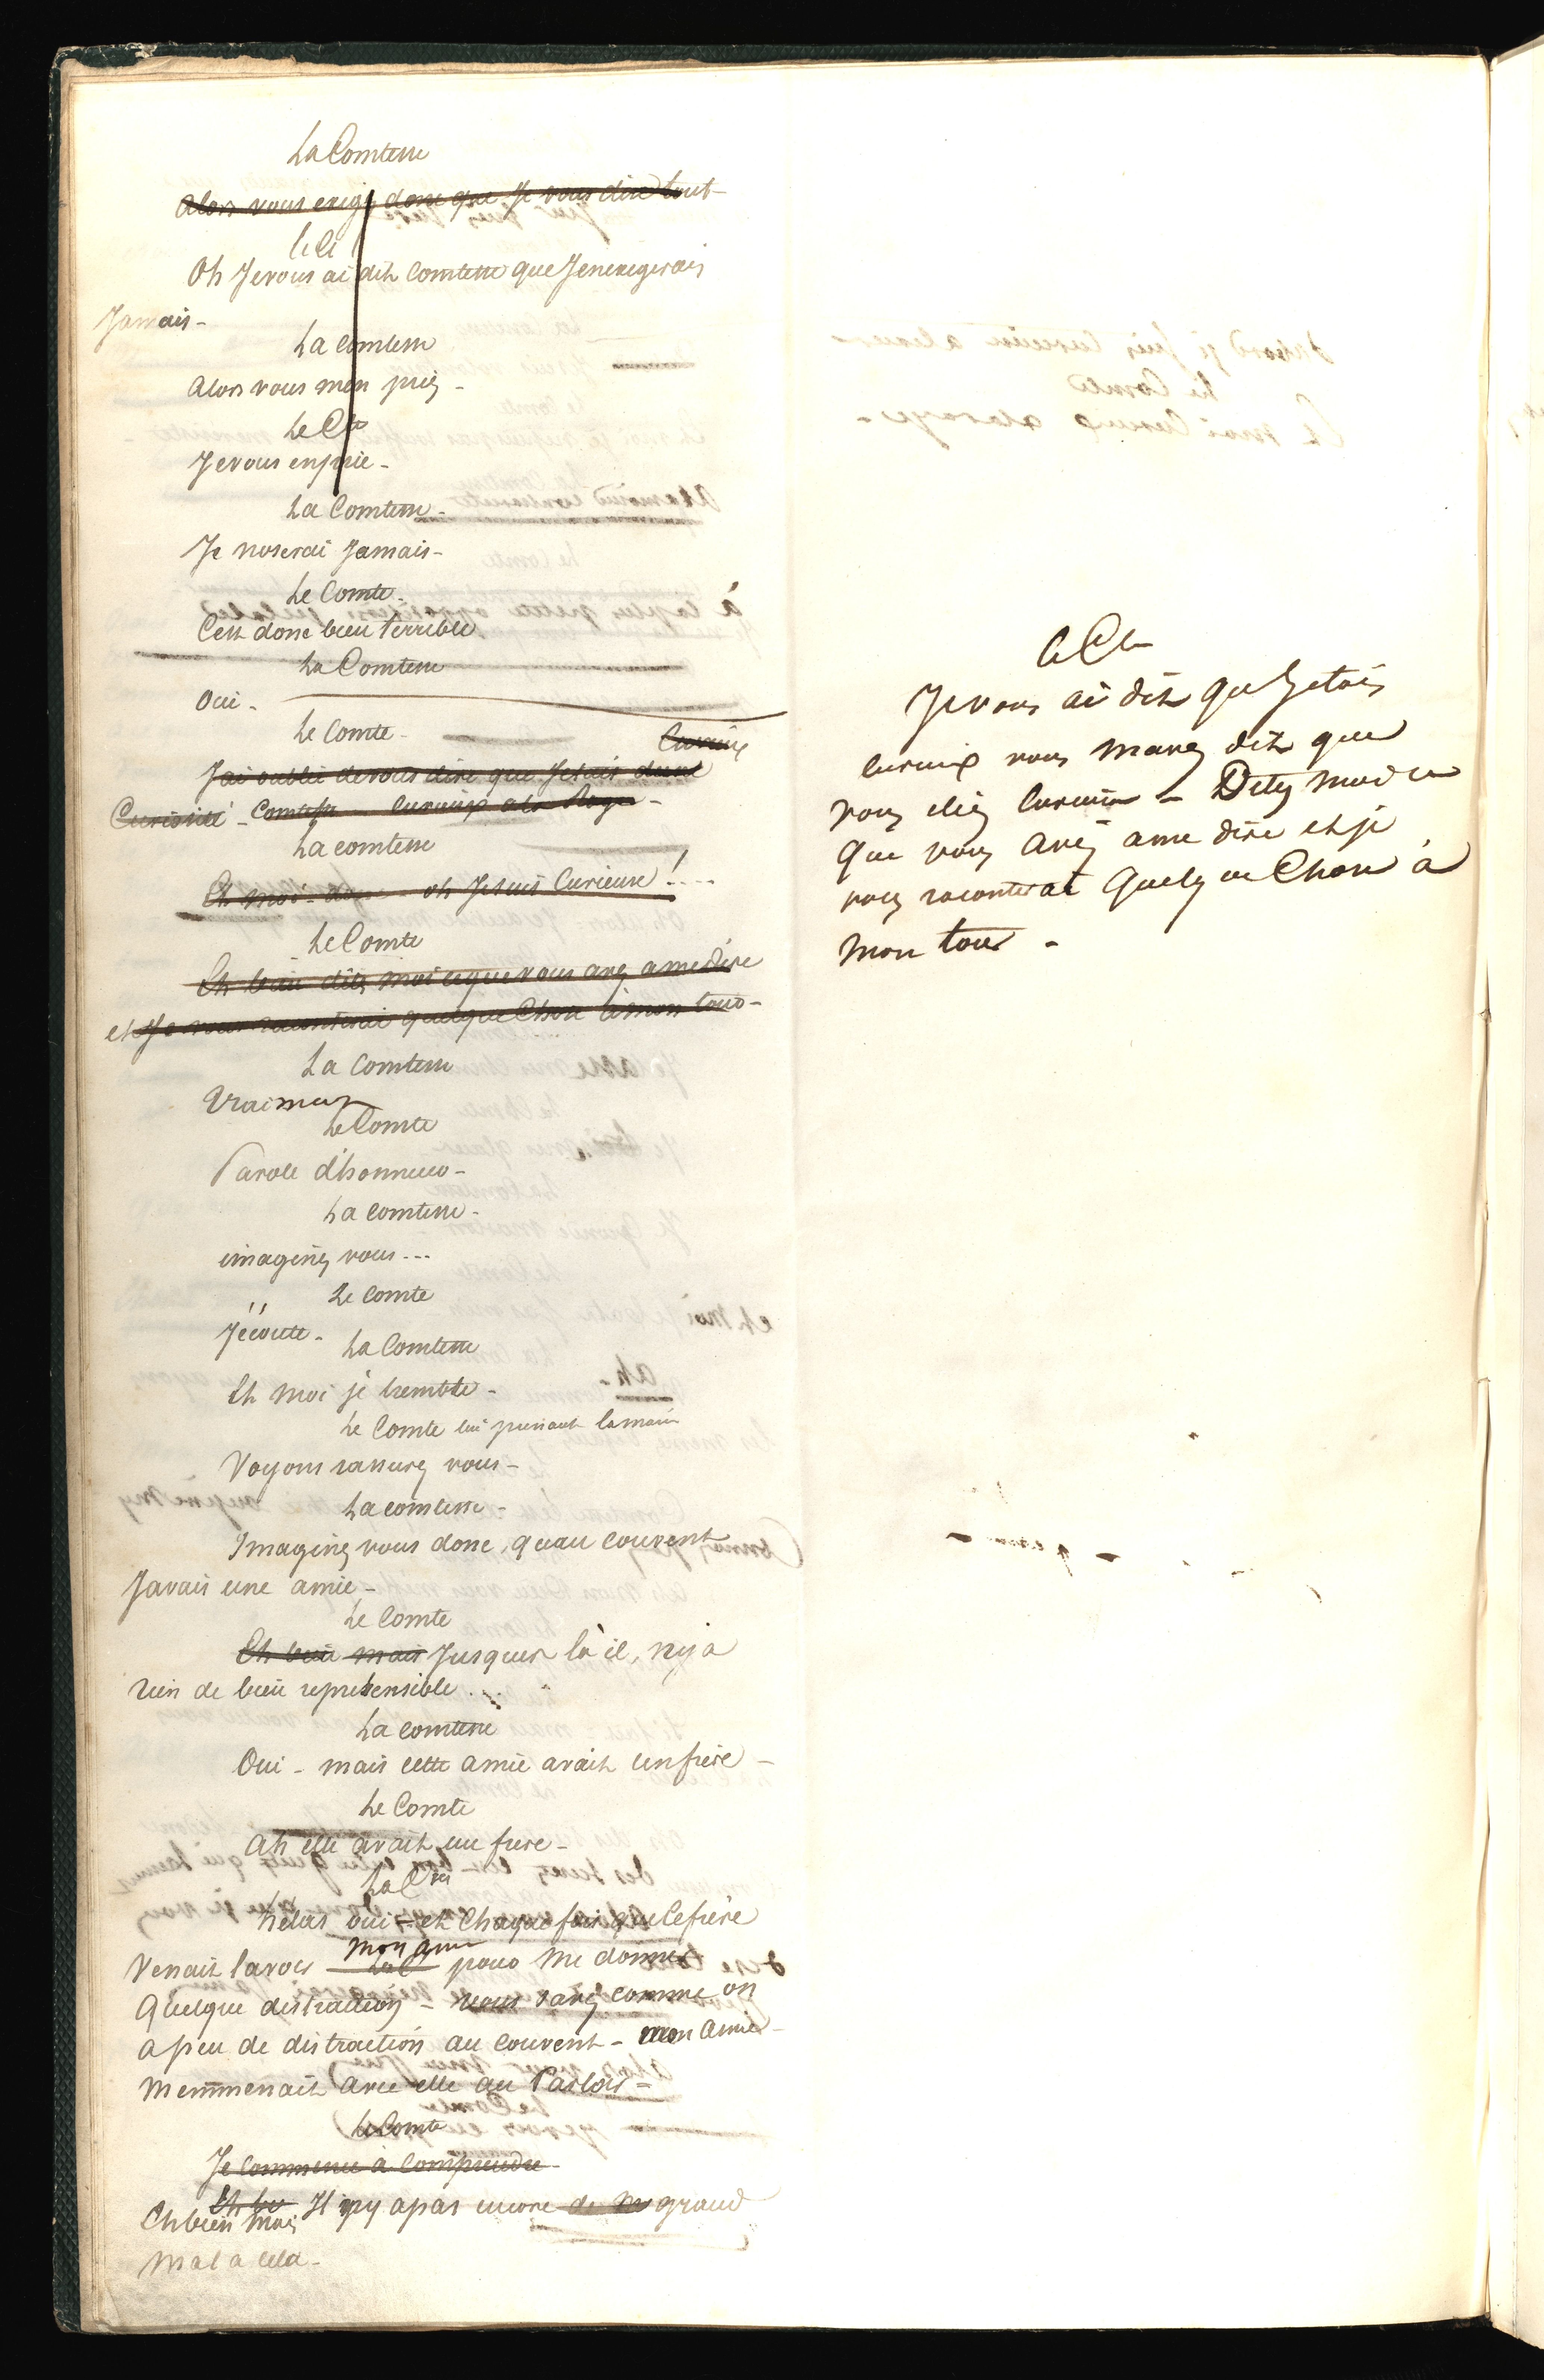 La Comtesse
Alors vous exigez donc que Je vous dise tout-
Le Cte
Oh Je vous ai dit Comtesse que Je n'exigerais
Jamais-
La comtesse
Alors vous m'en priez-
Le Cte
Je vous en prie-
La Comtesse-
Je noserai Jamais-
Le Comte-
C'est donc bien terrible
La Comtesse
Oui-
Le Comte-
Curieux
J'ai oublié de vous dire que J'étais d'une
Curiosité- Comtesse
La comtesse
Et moi donc oh Je suis Curieuse!....
Le Comte
Eh bien dites moi ce que vous avez a me dire
et Je vous raconterai quelque Chose à mon tour-
La Comtesse
Vraiment
Le Comte
Parole d'honneur-
La comtesse-
imaginez vous...
Le Comte
J'écoute-
La Comtesse
Et moi je tremble-
Le Comte lui prenant la main
Voyons rassurez vous-
La comtesse-
Imaginez vous donc, quau couvent
Javais une amie-
Le Comte
Eh bien mais Jusques là il, ny a
rien de bien reprehensible...
La comtesse
Oui- mais cette amie avait un frère-
Le Comte
Ah elle avait un frere-
La Ctesse
hélas oui- et Chaque fois que le frère
mon amie
Venait la voir pour me donner
Quelque distraction- vous savez comme on
a peu de distraction au couvent- mon amie
memmenait avec elle au Parloir-
Le Comte
Je commence à comprendre
Eh bien mais Il ny a pas encore de grand
mal a cela-
Le Cte
Je vous ai dit que Jetais
curieux vous mavez dit que
vous etiez Curieuse- Dites moi ce
que vous avez a me dire et je
vous raconterai quelque Chose à
mon tour-